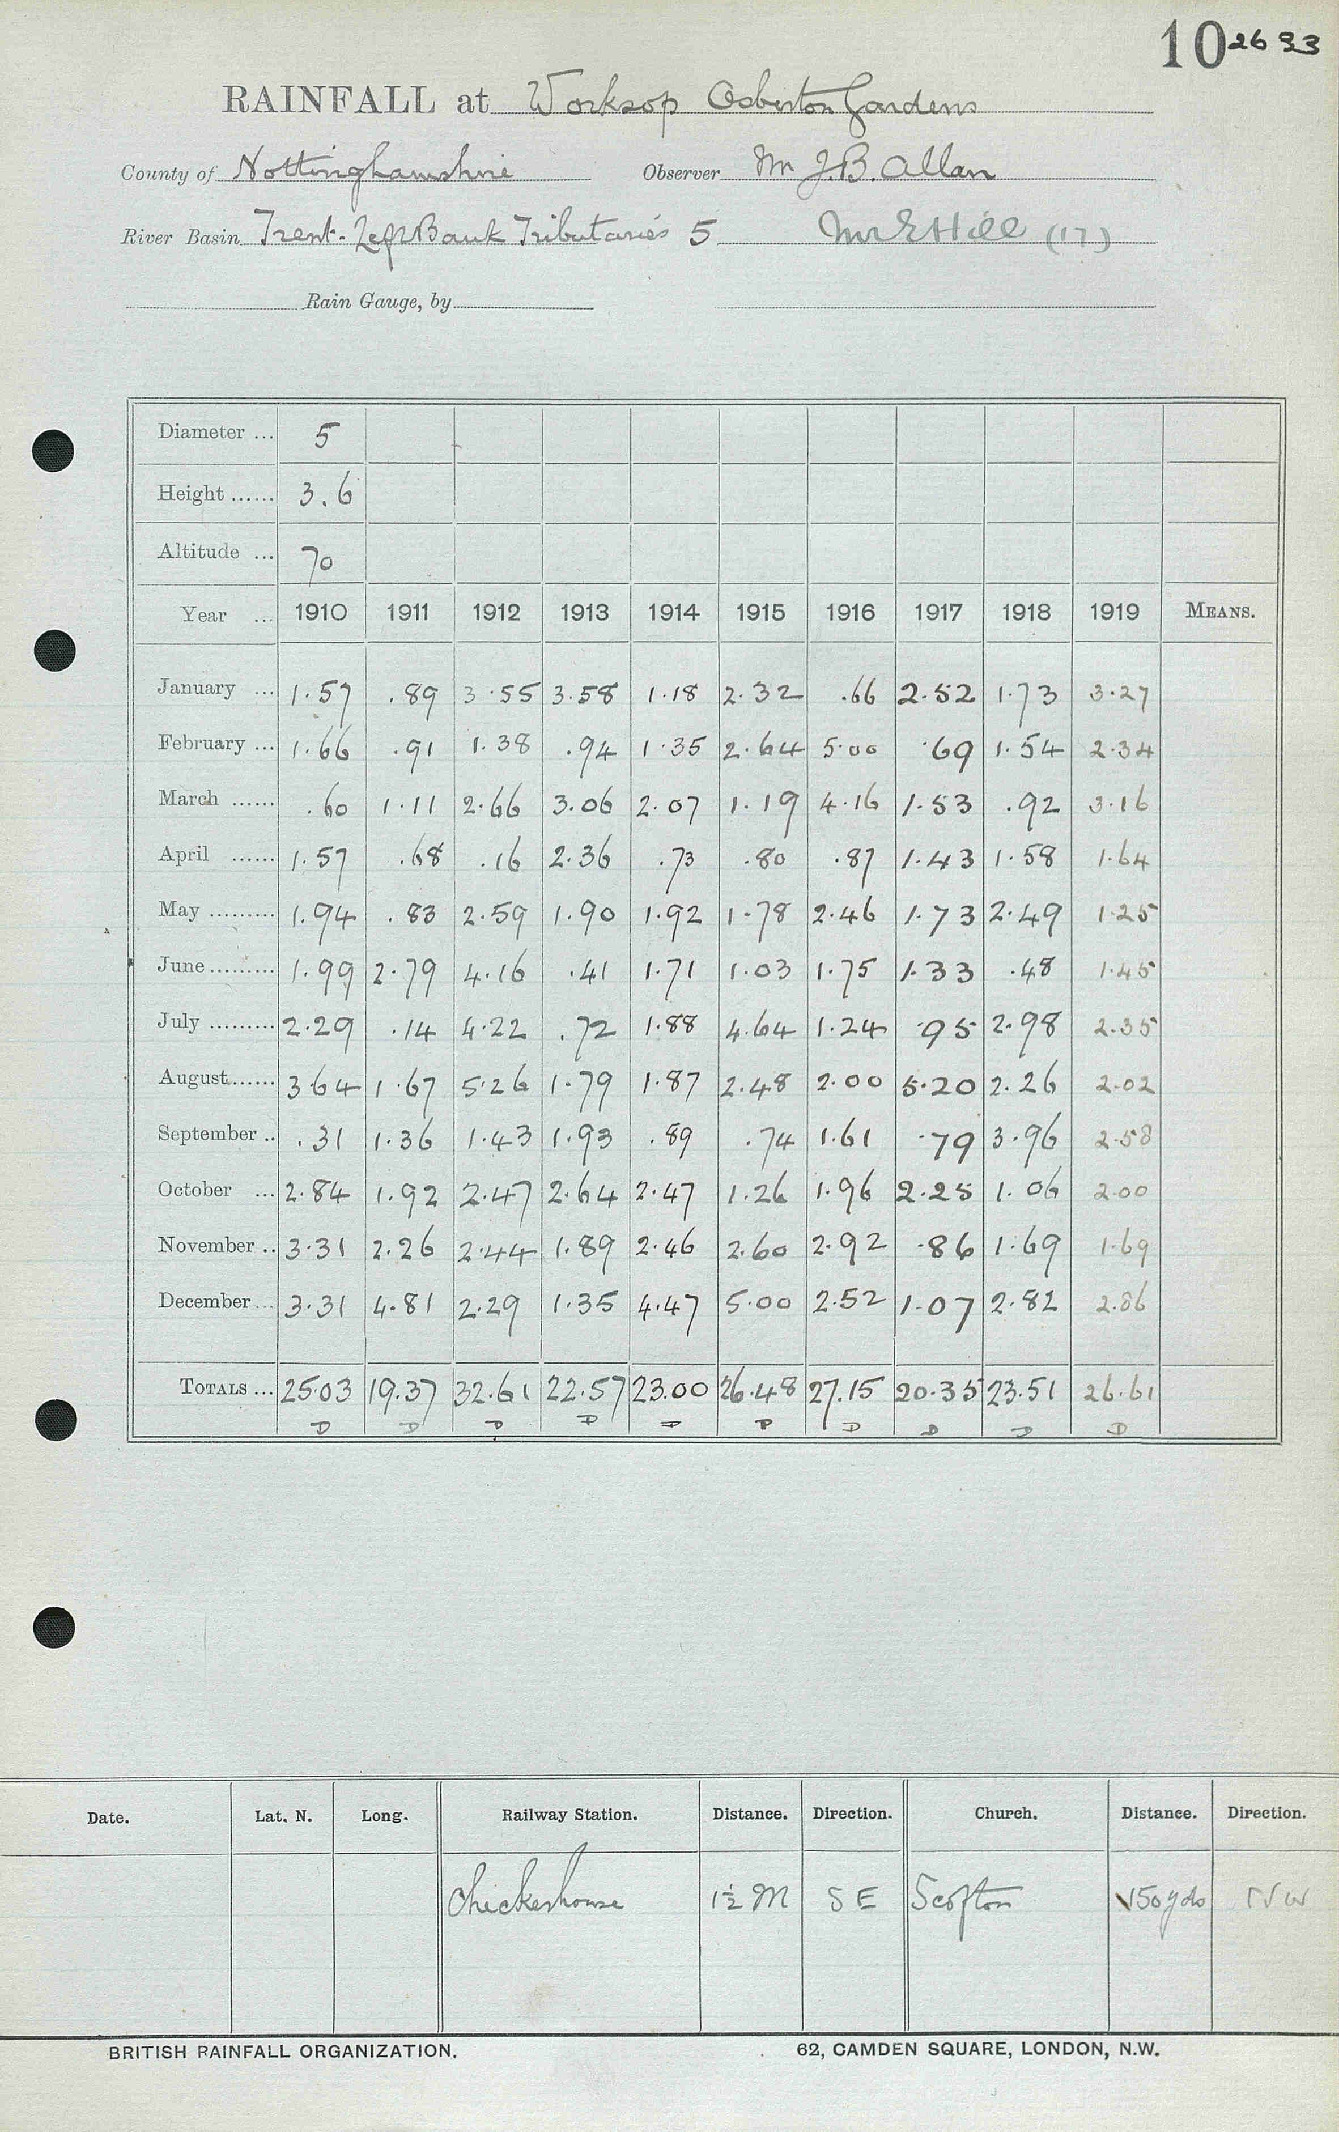 10 2633
RAINFALL at Worksop Osberton Gardens
County of Nottinghamshire Observer Mr J.B. Allan
River Basin Trent-Left Bank Tributaries 5 Mr E Hill (17)
Rain Gauge, by
Diameter ... 5
Height ...... 3.6
Altitude ... 70
Year ... 1910 1911 1912 1913 1914 1915 1916 1917 1918 1919 MEANS.
January ... 1.57 .89 3.55 3.58 1.18 2.32 .66 2.52 1.73 3.27
February ... 1.66 .91 1.38 .94 1.35 2.64 5.00 .69 1.54 2.34
March ...... .60 1.11 2.66 3.06 2.07 1.19 4.16 1.53 .92 3.16
April ...... 1.57 .68 .16 2.36 .73 .80 .87 1.43 1.58 1.64
May ......... 1.94 .83 2.59 1.90 1.92 1.78 2.46 1.73 2.49 1.25
June ......... 1.99 2.79 4.16 .41 1.71 1.03 1.75 1.33 .48 1.45
July ......... 2.29 .14 4.22 .72 1.88 4.64 1.24 .95 2.98 2.35
August...... 3.64 1.67 5.26 1.79 1.87 2.48 2.00 5.20 2.26 2.02
September .. .31 1.36 1.43 1.93 .89 .74 1.61 .79 3.96 2.58
October ... 2.84 1.92 2.47 2.64 2.47 1.26 1.96 2.25 1.06 2.00
November .. 3.31 2.26 2.44 1.89 2.46 2.60 2.92 .86 1.69 1.69
December ... 3.31 4.81 2.29 1.35 4.47 5.00 2.52 1.07 2.82 2.86
TOTALS ... 25.03 19.37 32.61 22.57 23.00 26.48 27.15 20.35 23.51 26.61
D D D D D D D D D D
Date. Lat. N. Long. Railway Station. Distance. Direction. Church. Distance. Direction.
Checkerhouse 1½ M S E Scofton 150 yds N W
BRITISH RAINFALL ORGANIZATION. 62, CAMDEN SQUARE, LONDON, N.W.